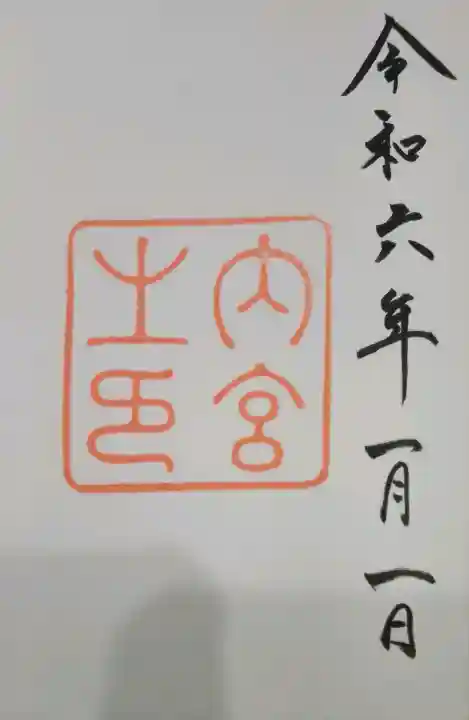 令和六年一月一日
内宮
之印